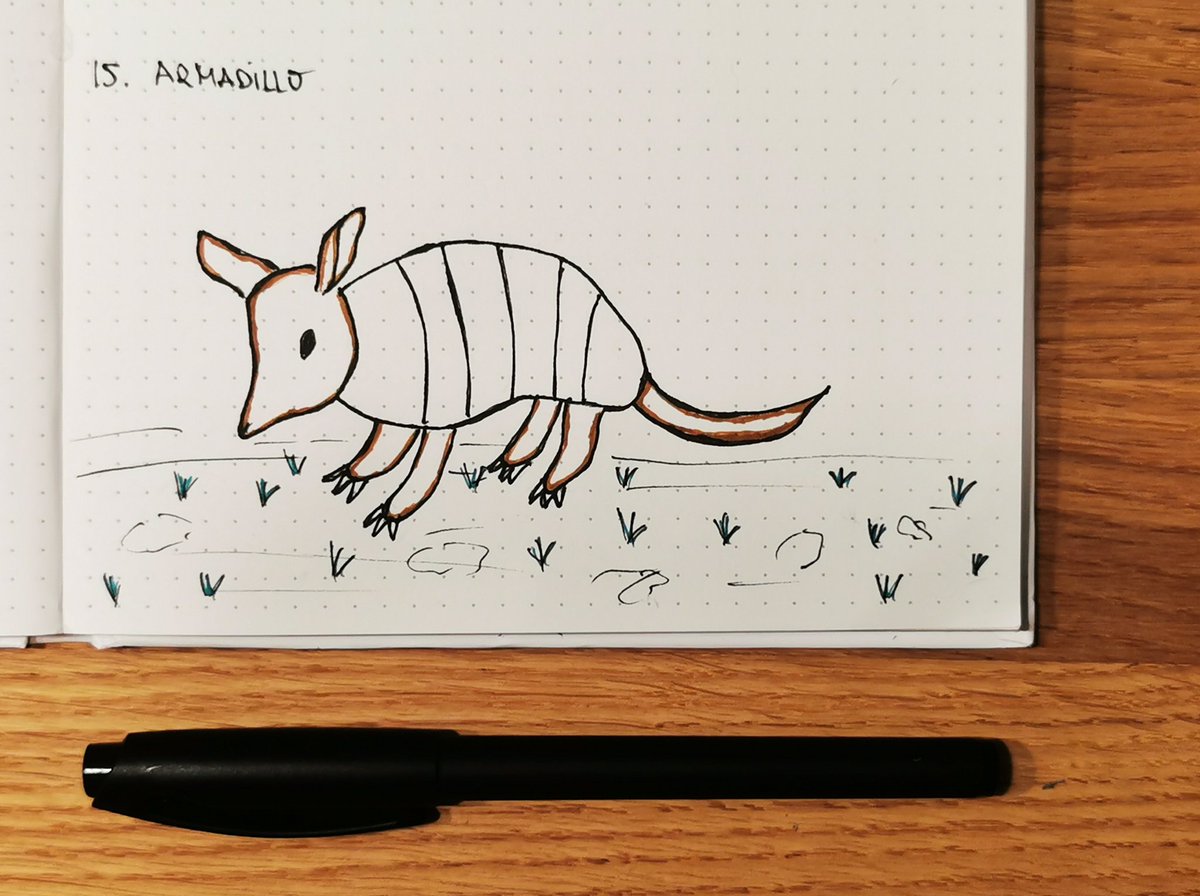 15. ARMADiLLO